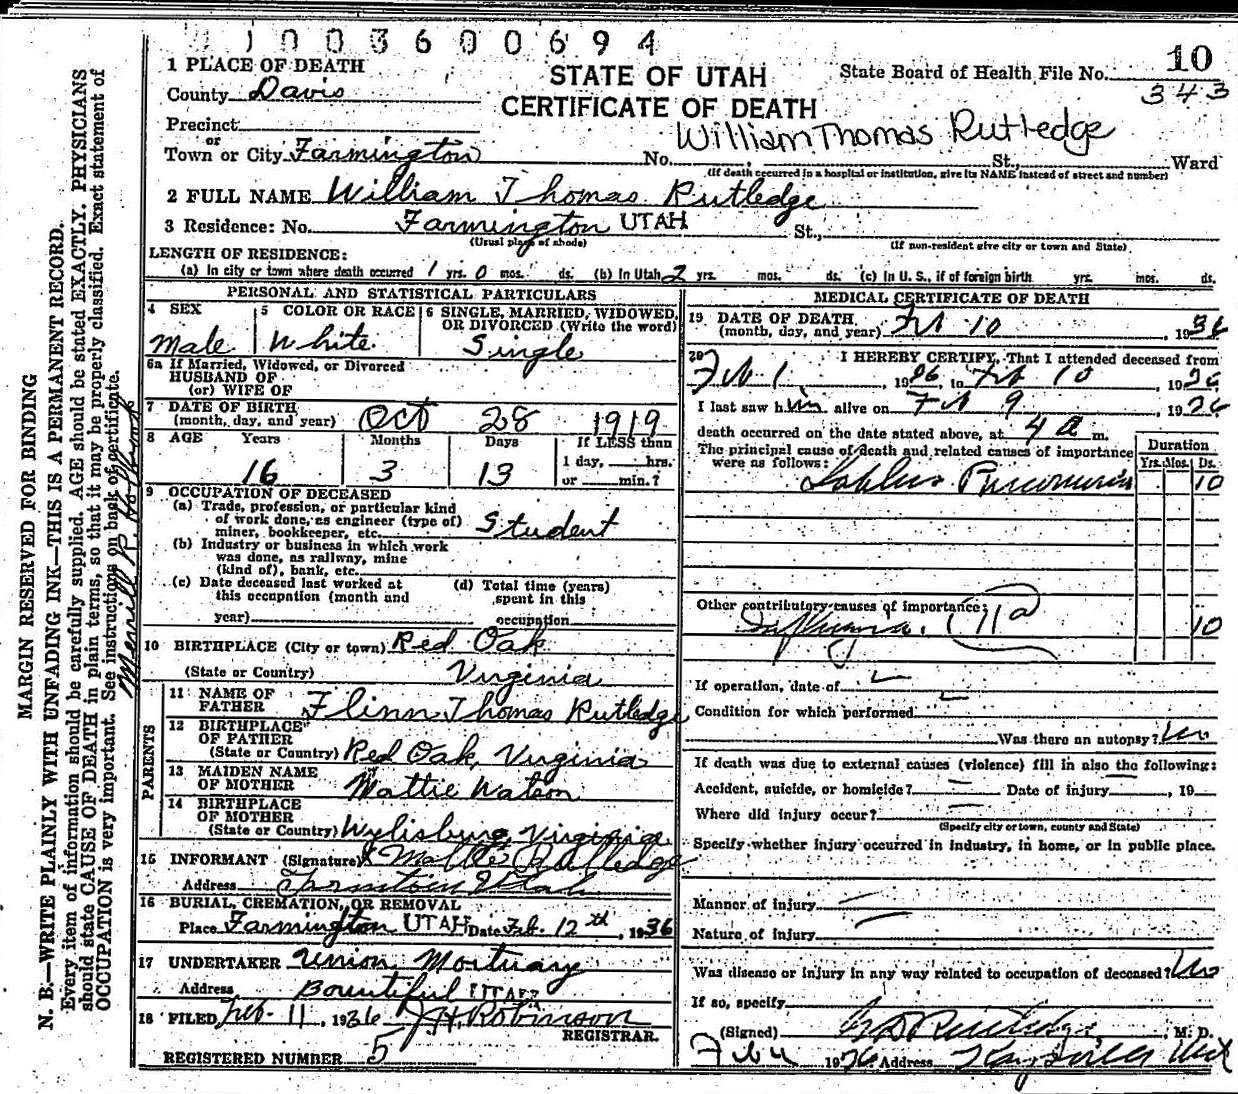 1003600694
10
1 PLACE OF DEATH
STATE OF UTAH
State Board of Health File No.
343
County Davis
CERTIFICATE OF DEATH
Precinct
William Thomas Rutledge
or
Town or City Farmington No. St., Ward
(If death occurred in a hospital or institution, give its NAME instead of street and number)
2 FULL NAME William Thomas Rutledge
3 Residence: No. Farmington UTAH St.,
(Usual place of abode) (If non-resident give city or town and State)
LENGTH OF RESIDENCE:
(a) In city or town where death occurred 1 yrs. 0 mos. ds. (b) In Utah 2 yrs. mos. ds. (c) In U. S., if of foreign birth yrs. mos. ds.
PERSONAL AND STATISTICAL PARTICULARS
4 SEX
Male
5 COLOR OR RACE
White
6 SINGLE, MARRIED, WIDOWED, OR DIVORCED (Write the word)
Single
6a If Married, Widowed, or Divorced
HUSBAND OF
(or) WIFE OF
7 DATE OF BIRTH
(month, day, and year) Oct 28 1919
8 AGE Years Months Days If LESS than
16 3 13 1 day, hrs.
or min.?
9 OCCUPATION OF DECEASED
(a) Trade, profession, or particular kind
of work done, as engineer (type of)
miner, bookkeeper, etc. Student
(b) Industry or business in which work
was done, as railway, mine
(kind of), bank, etc.
(c) Date deceased last worked at (d) Total time (years)
this occupation (month and spent in this
year) occupation
10 BIRTHPLACE (City or town) Red Oak
(State or Country) Virginia
PARENTS
11 NAME OF
FATHER Flinn Thomas Rutledge
12 BIRTHPLACE
OF FATHER
(State or Country) Red Oak, Virginia
13 MAIDEN NAME
OF MOTHER Mattie Watson
14 BIRTHPLACE
OF MOTHER
(State or Country) Wylisburg, Virginia
15 INFORMANT (Signature) X Mattie Rutledge
Address Utah
16 BURIAL, CREMATION, OR REMOVAL
Place Farmington UTAH Date Feb. 12th, 1936
17 UNDERTAKER Union Mortuary
Address Bountiful UTAH
18 FILED Feb. 11, 1936 J H Robinson
REGISTRAR.
REGISTERED NUMBER 5
MEDICAL CERTIFICATE OF DEATH
19 DATE OF DEATH
(month, day, and year) Feb 10, 1936
20 I HEREBY CERTIFY, That I attended deceased from
Feb 1, 1936, to Feb 10, 1936
I last saw him alive on Feb 9, 1936
death occurred on the date stated above, at 4 a m.
The principal cause of death and related causes of importance
were as follows:
Duration
Yrs. Mos. Ds.
Lobular Pneumonia 10
Other contributory causes of importance:
Influenza. 11a 10
If operation, date of
Condition for which performed
Was there an autopsy? No
If death was due to external causes (violence) fill in also the following:
Accident, suicide, or homicide? Date of injury, 19
Where did injury occur?
(Specify city or town, county and State)
Specify whether injury occurred in industry, in home, or in public place.
Manner of injury
Nature of injury
Was disease or injury in any way related to occupation of deceased? No
If so, specify
(Signed) Rutledge M. D.
1936 Address Kaysville Utah
MARGIN RESERVED FOR BINDING
N. B.—WRITE PLAINLY WITH UNFADING INK—THIS IS A PERMANENT RECORD.
Every item of information should be carefully supplied. AGE should be stated EXACTLY. PHYSICIANS
should state CAUSE OF DEATH in plain terms, so that it may be properly classified. Exact statement of
OCCUPATION is very important. See instructions on back of certificate.
Merrill R.